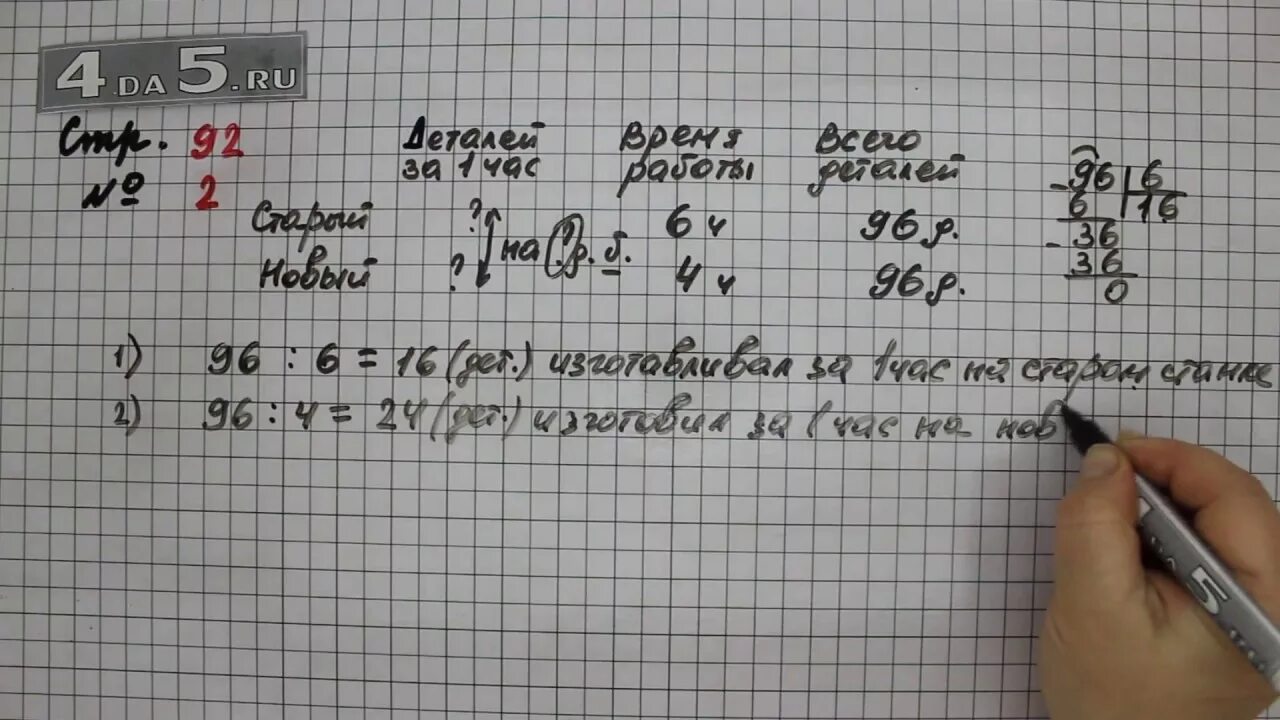 4.DA5.RU
Стр. 92
№ 2
Деталей за 1 час
Время работы
Всего деталей
Старый ? 6 ч 96 д.
на ? д. б.
Новый ? 4 ч 96 д.
- 96 | 6
6 16
- 36
36
0
1) 96 : 6 = 16 (дет.) изготавливал за 1 час на старом станке
2) 96 : 4 = 24 (дет.) изготовил за 1 час на нов
5